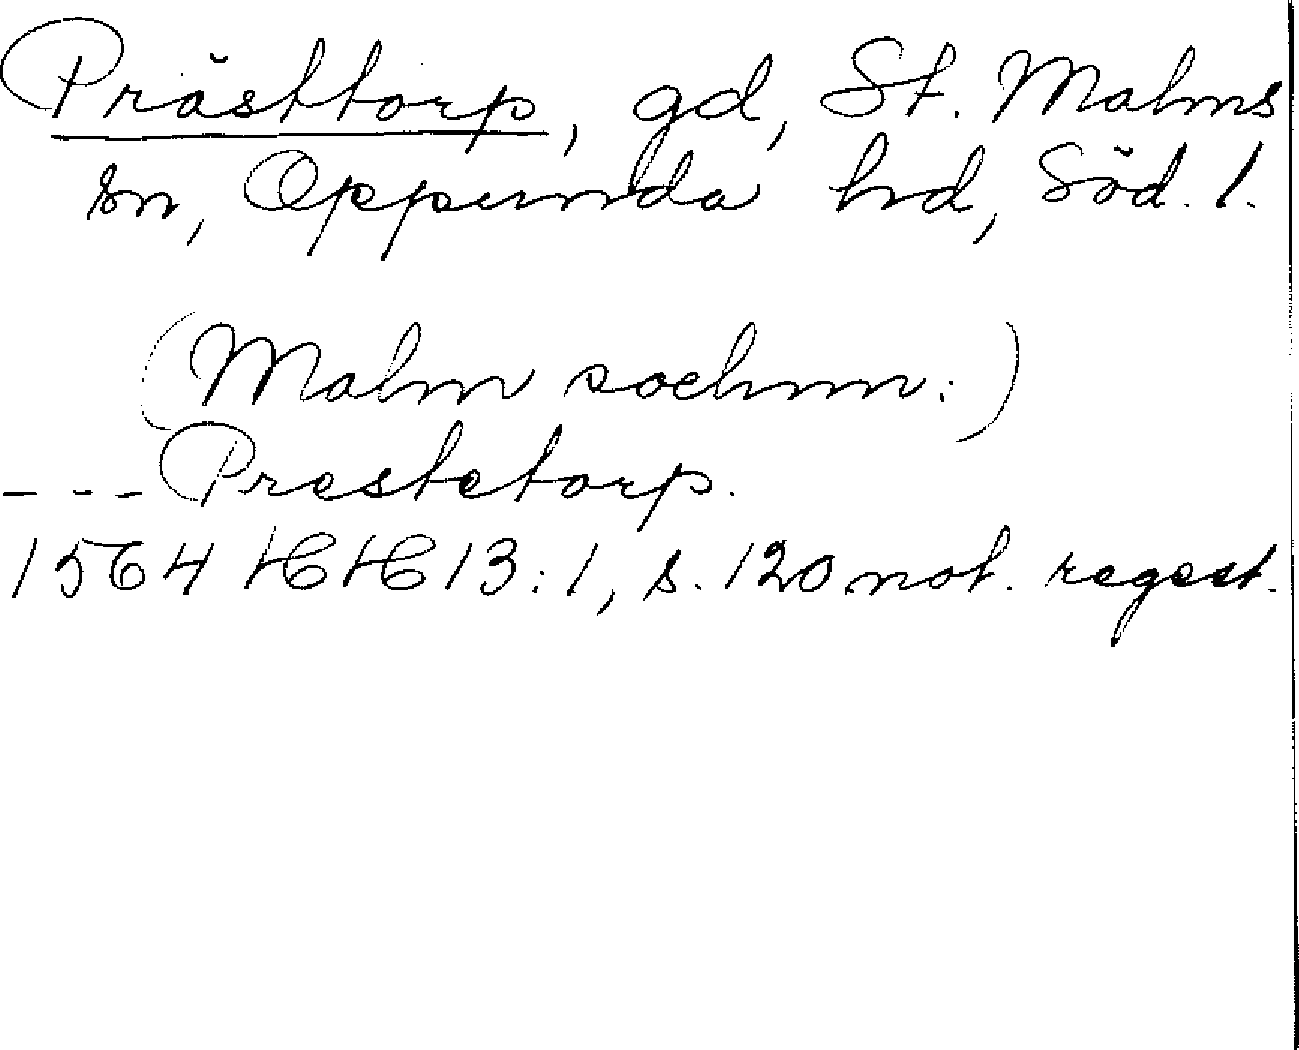 Prästtorp, gd, St. Malms
sn, Oppunda hd, Söd. l.
(Malm sochnn:)
--- Prestetorp.
1564 HH 13:1, s. 120 not. regest.